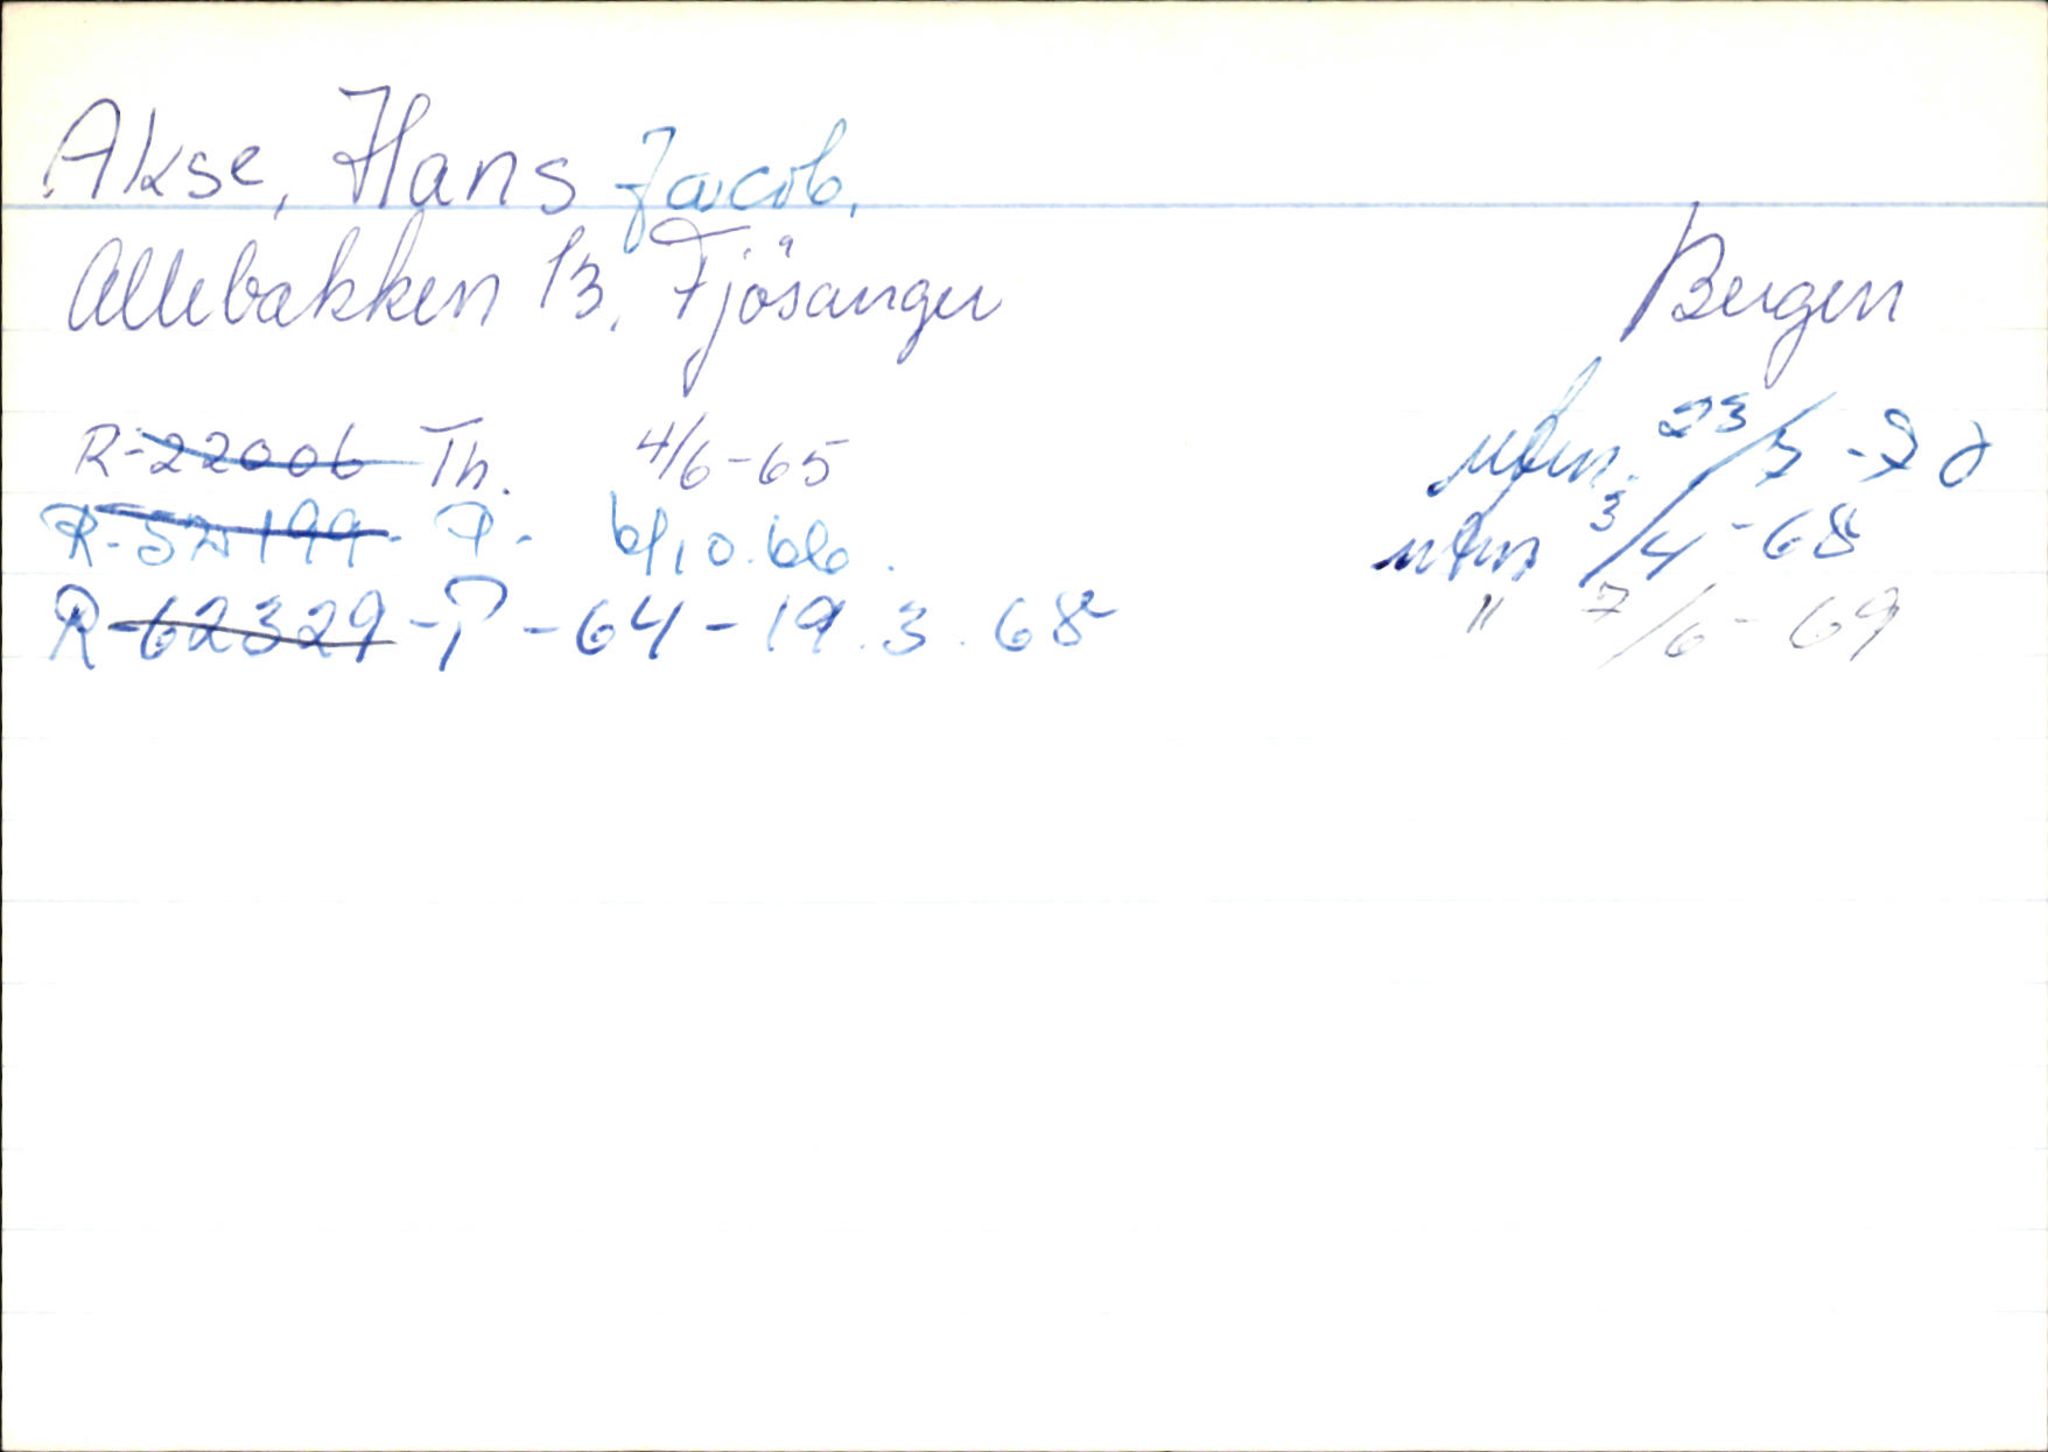 Akse, Hans Jacob.
Allebakken 13, Fjösanger Bergen
R-22006 Th. 4/6-65
R-52199- P- 6/10.66.
R-62329-P-64-19.3.68
23/3-70
3/4-68
" 7/6-69